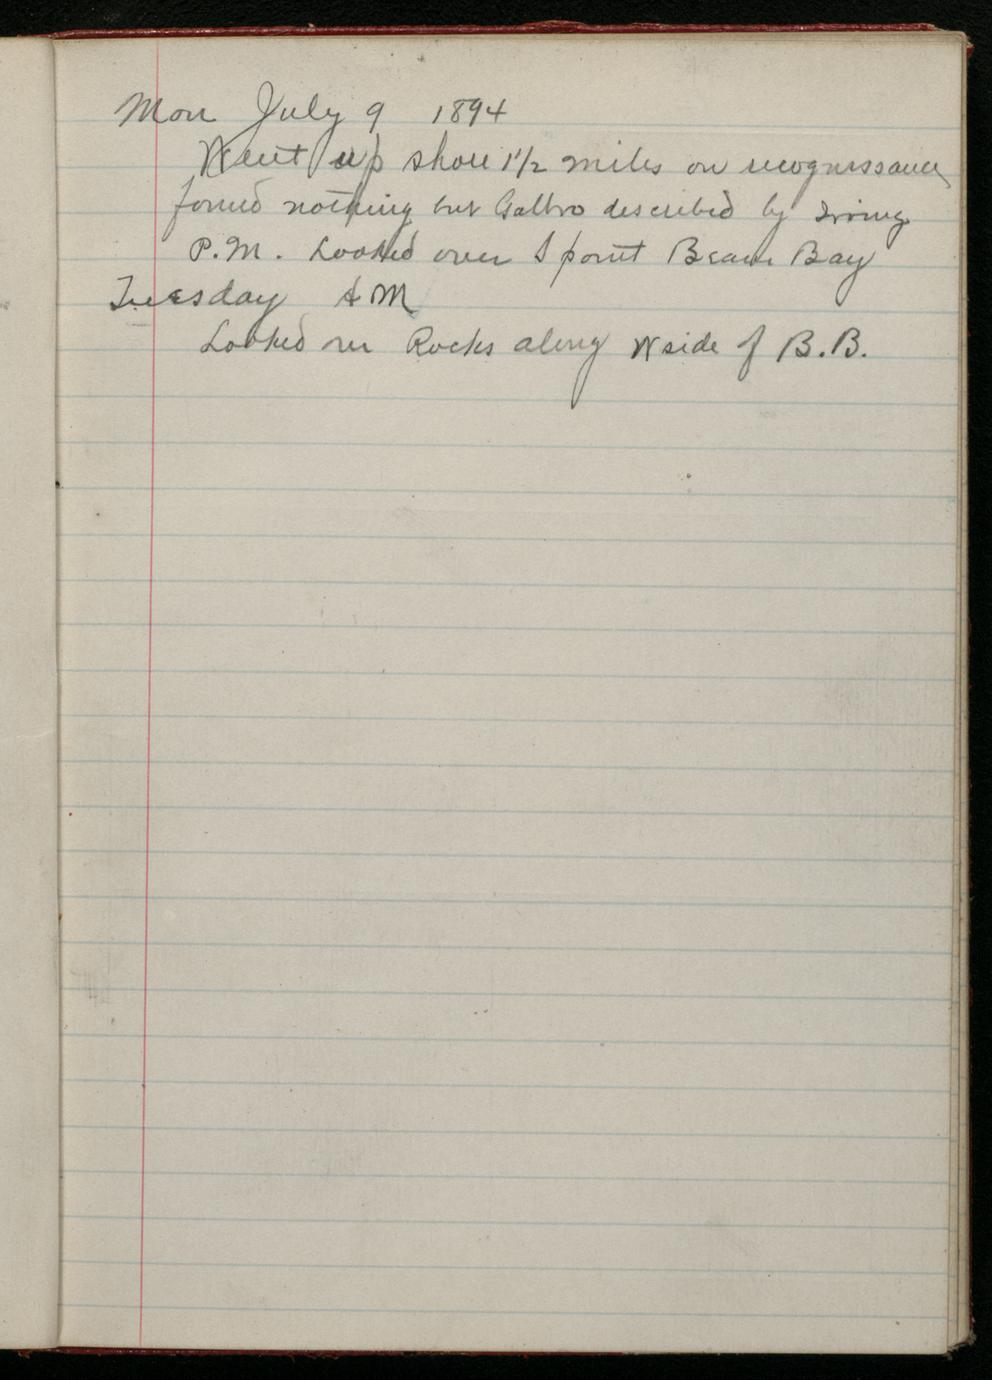 Mon July 9 1894
Went up shore 1 1/2 miles on recognissance
found nothing but Gabbro described by Irving
P.M. Looked over S point Beaver Bay
Tuesday AM
Looked over Rocks along W side of B.B.